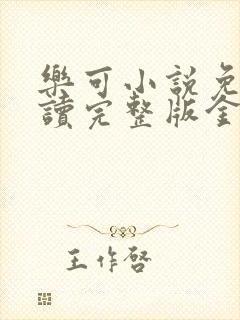 樂可小說免
讀完整版全
王作啓